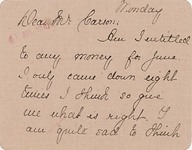 Monday
Dear Mr Carson:
Am I entitled
to any money for June.
I only came down eight
times I think so give
me what is right. I
am quite sad to think